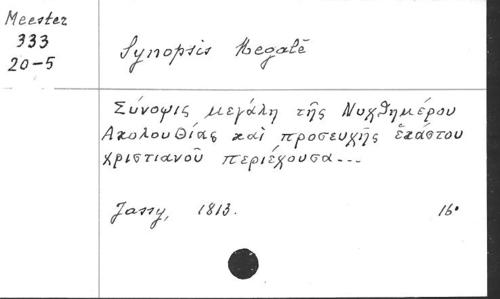 Meester
333
20-5
Synopsis Megalē
Σύνοψις μεγάλη τῆς Νυχθημέρου
Ακολουθίας καὶ προσευχῆς ἑκάστου
χριστιανοῦ περιέχουσα...
Jassy, 1813. 16°